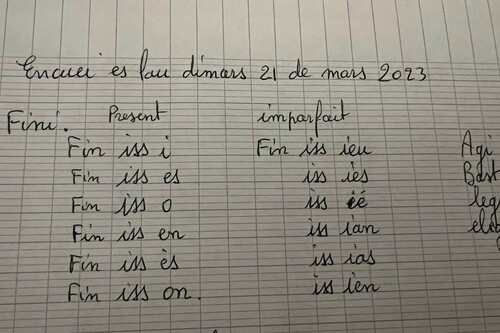 Encuei es lou dimars 21 de mars 2023
Present imparfait
Fini.
Fin iss i Fin iss ieu Agi
Fin iss es iss iès Bast
Fin iss o iss ié leg
Fin iss en iss ian
Fin iss ès iss ias
Fin iss on. iss ien